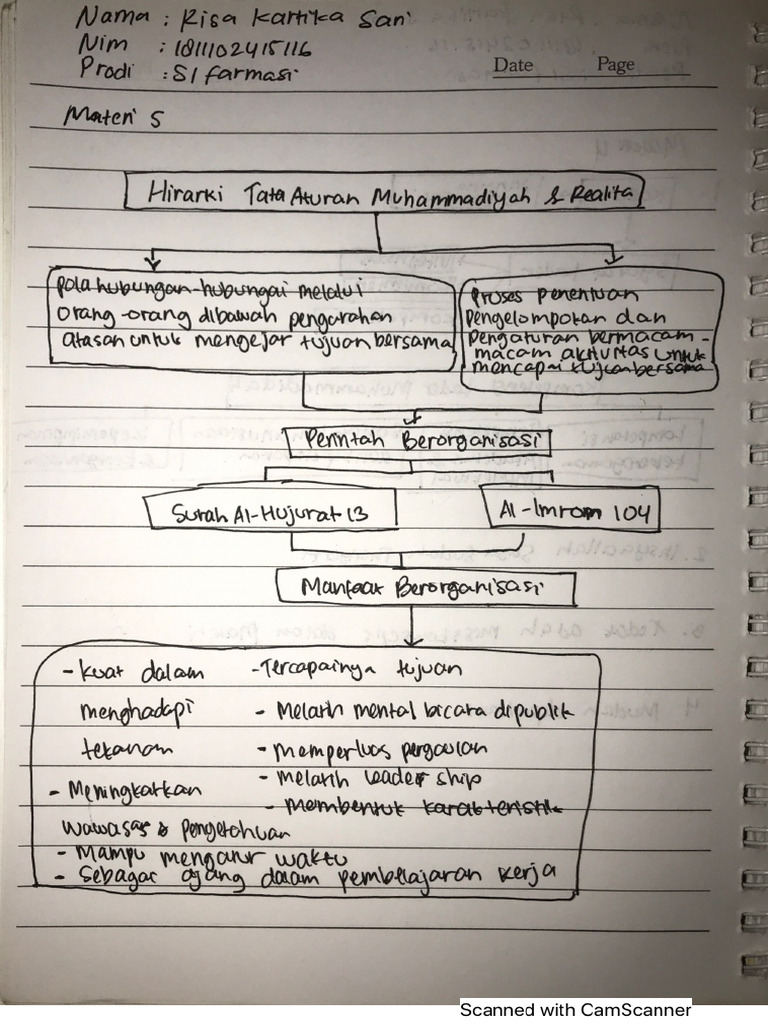 Nama : Risa Kartika Sari
Nim : 1811102415116
Prodi : S1 farmasi
Date Page
Materi 5
Hirarki Tata Aturan Muhammadiyah & Realita
pola hubungan-hubungai melalui
orang-orang dibawah pengarahan
atasan untuk mengejar tujuan bersama
proses penentuan
pengelompokan dan
pengaturan bermacam-
macam aktivitas untuk
mencapai tujuan bersama
Perintah Berorganisasi
Surah Al-Hujurat 13
Al-Imron 104
Manfaat Berorganisasi
- kuat dalam
menghadapi
tekanan
- Meningkatkan
wawasan & pengetahuan
- Mampu mengatur waktu
- Sebagai ajang dalam pembelajaran kerja
- Tercapainya tujuan
- Melatih mental bicara dipublik
- Memperluas pergaulan
- Melatih leader ship
- Membentuk karakteristik
Scanned with CamScanner